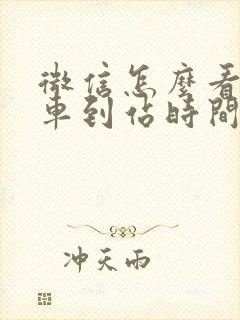 微信怎麼看
車到佔時間
冲天雨